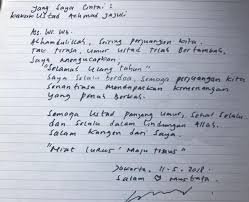 Yang Saya Cintai:
Kawan Ustad Achmad Jajuli
As. Wr. Wb.
Alhamdulillah, Seiring perjuangan kita
Tak terasa, umur ustad Telah Bertambah,
Saya mengucapkan,
"Selamat Ulang Tahun"
Saya Selalu berdoa, Semoga perjuangan kita
Senantiasa mendapatkan kemenangan
yang penuh Berkah.
Semoga Ustad panjang umur, sehat selalu
dan Selalu dalam lindungan Allah.
Salam Kangen dari Saya.
"Mirat Lurus" Maju Terus"
Jakarta, 11-5-2018.
Salam Mustafa